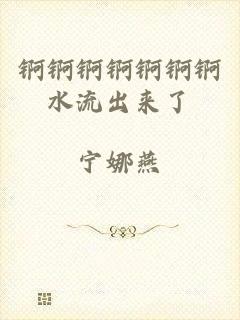 锕锕锕锕锕锕锕
水流出来了
宁娜燕